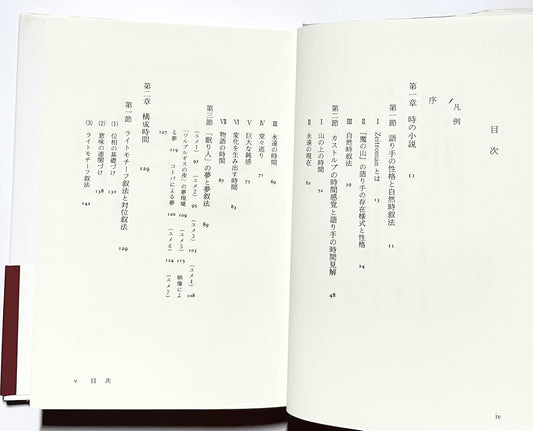 目次
凡例
序
第一章 時の小説 11
第一節 語り手の性格と自然時叙法 11
I Zeitroman とは 13
II 『魔の山』の語り手の存在様式と性格 24
III 自然時叙法 19
第二節 カストルプの時間感覚と語り手の時間見解 48
I 山の上の時間 52
II 永遠の現在 62
iv
III 永遠の時間 69
IV 堂々巡り 71
V 巨大な鈍感 77
VI 変化を生み出す時間 83
VII 物語の時間 87
第三節 「眠り人」の夢と夢叙法 89
(ユメ1) (ユメ2) 95 (ユメ3) 105 (ユメ4) 108
「ワルプルギスの夜」の夢環境 109 (ユメ5) 115 映像によ
る夢 119 コトバによる夢 120 (ユメ6) 124 (ユメ7)
127
第二章 構成時間 129
第一節 ライトモチーフ叙法と対位叙法 129
(1) 位相の基礎づけ 130
(2) 意味の連関づけ 138
(3) ライトモチーフ叙法 142
v 目次